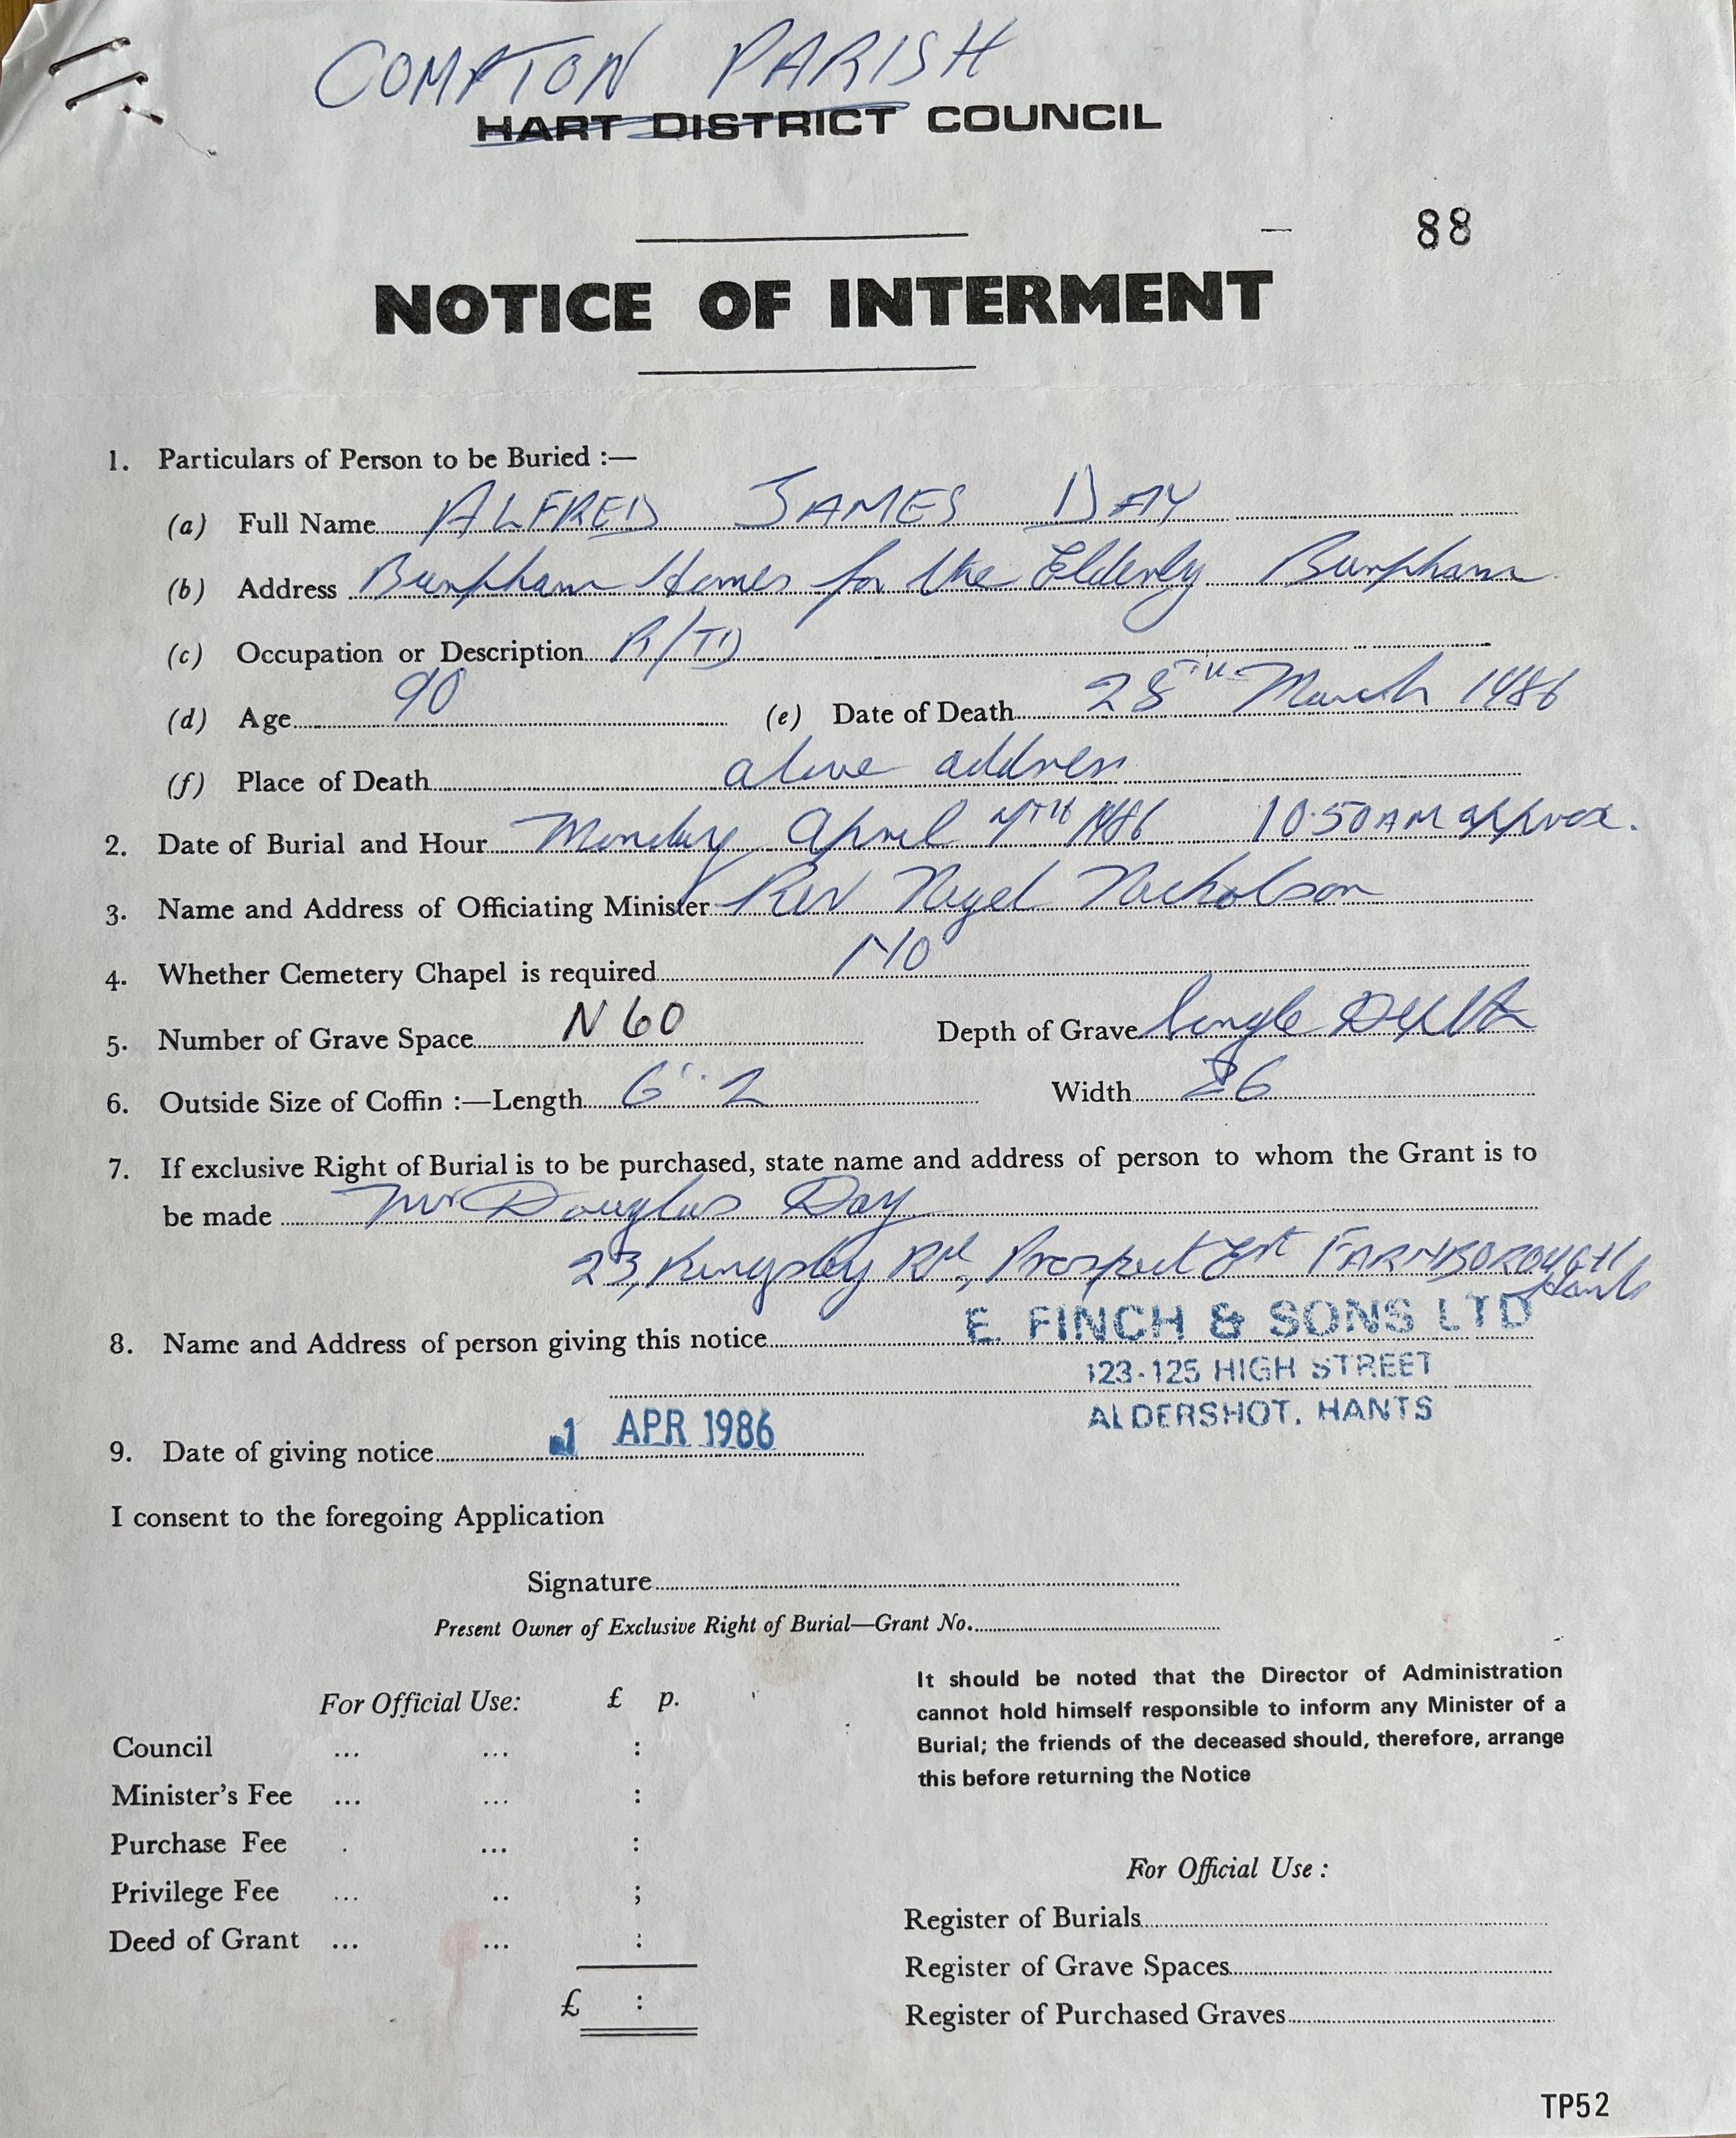 COMPTON PARISH
HART DISTRICT COUNCIL
88
NOTICE OF INTERMENT
1. Particulars of Person to be Buried :—
(a) Full Name ALFRED JAMES DAY
(b) Address Burpham Homes for the Elderly Burpham
(c) Occupation or Description R/TD
(d) Age 90 (e) Date of Death 28TH March 1986
(f) Place of Death above address
2. Date of Burial and Hour Monday April 7TH 1986 10.50 AM approx.
3. Name and Address of Officiating Minister Rev Nigel Nicholson
4. Whether Cemetery Chapel is required NO
5. Number of Grave Space N 60 Depth of Grave Single Depth
6. Outside Size of Coffin :—Length 6' 2 Width 26
7. If exclusive Right of Burial is to be purchased, state name and address of person to whom the Grant is to
be made Mr Douglas Day
23, Kingsley Rd, Prospect Est FARNBOROUGH
Hants
8. Name and Address of person giving this notice E. FINCH & SONS LTD
123-125 HIGH STREET
ALDERSHOT, HANTS
9. Date of giving notice 1 APR 1986
I consent to the foregoing Application
Signature
Present Owner of Exclusive Right of Burial—Grant No.
For Official Use: £ p.
Council ... ... :
Minister's Fee ... ... :
Purchase Fee . ... :
Privilege Fee ... .. ;
Deed of Grant ... ... :
£ :
It should be noted that the Director of Administration
cannot hold himself responsible to inform any Minister of a
Burial; the friends of the deceased should, therefore, arrange
this before returning the Notice
For Official Use :
Register of Burials
Register of Grave Spaces
Register of Purchased Graves
TP52